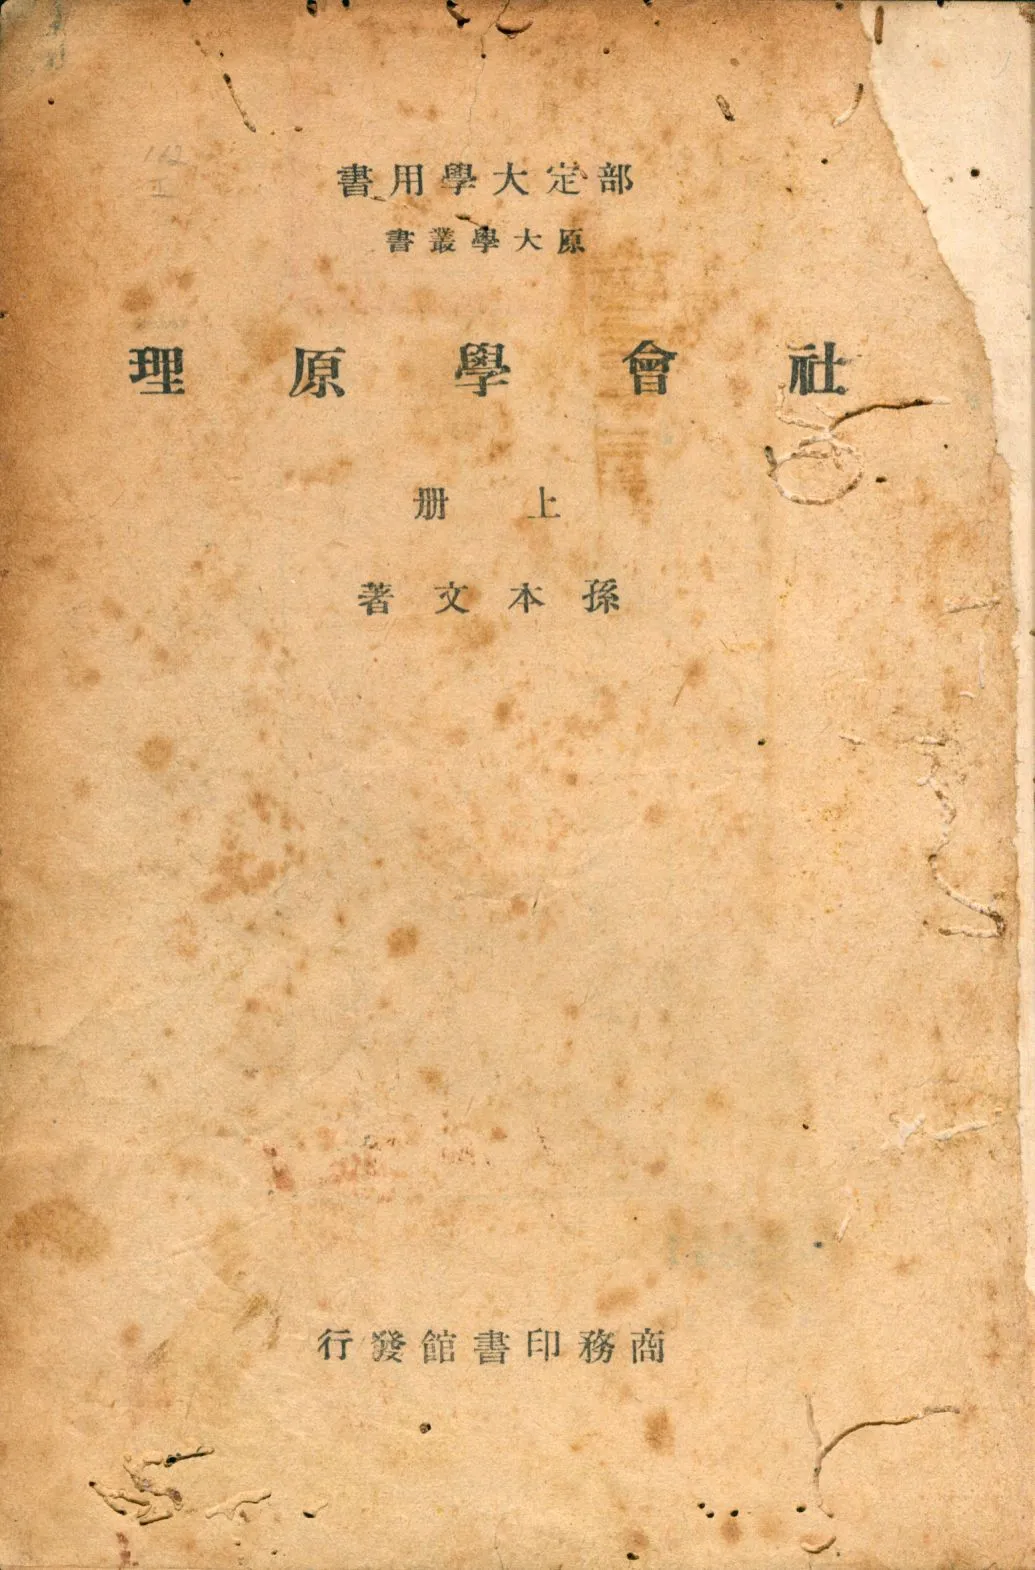 部定大學用書
原大學叢書
社會學原理
上册
孫本文著
商務印書館發行